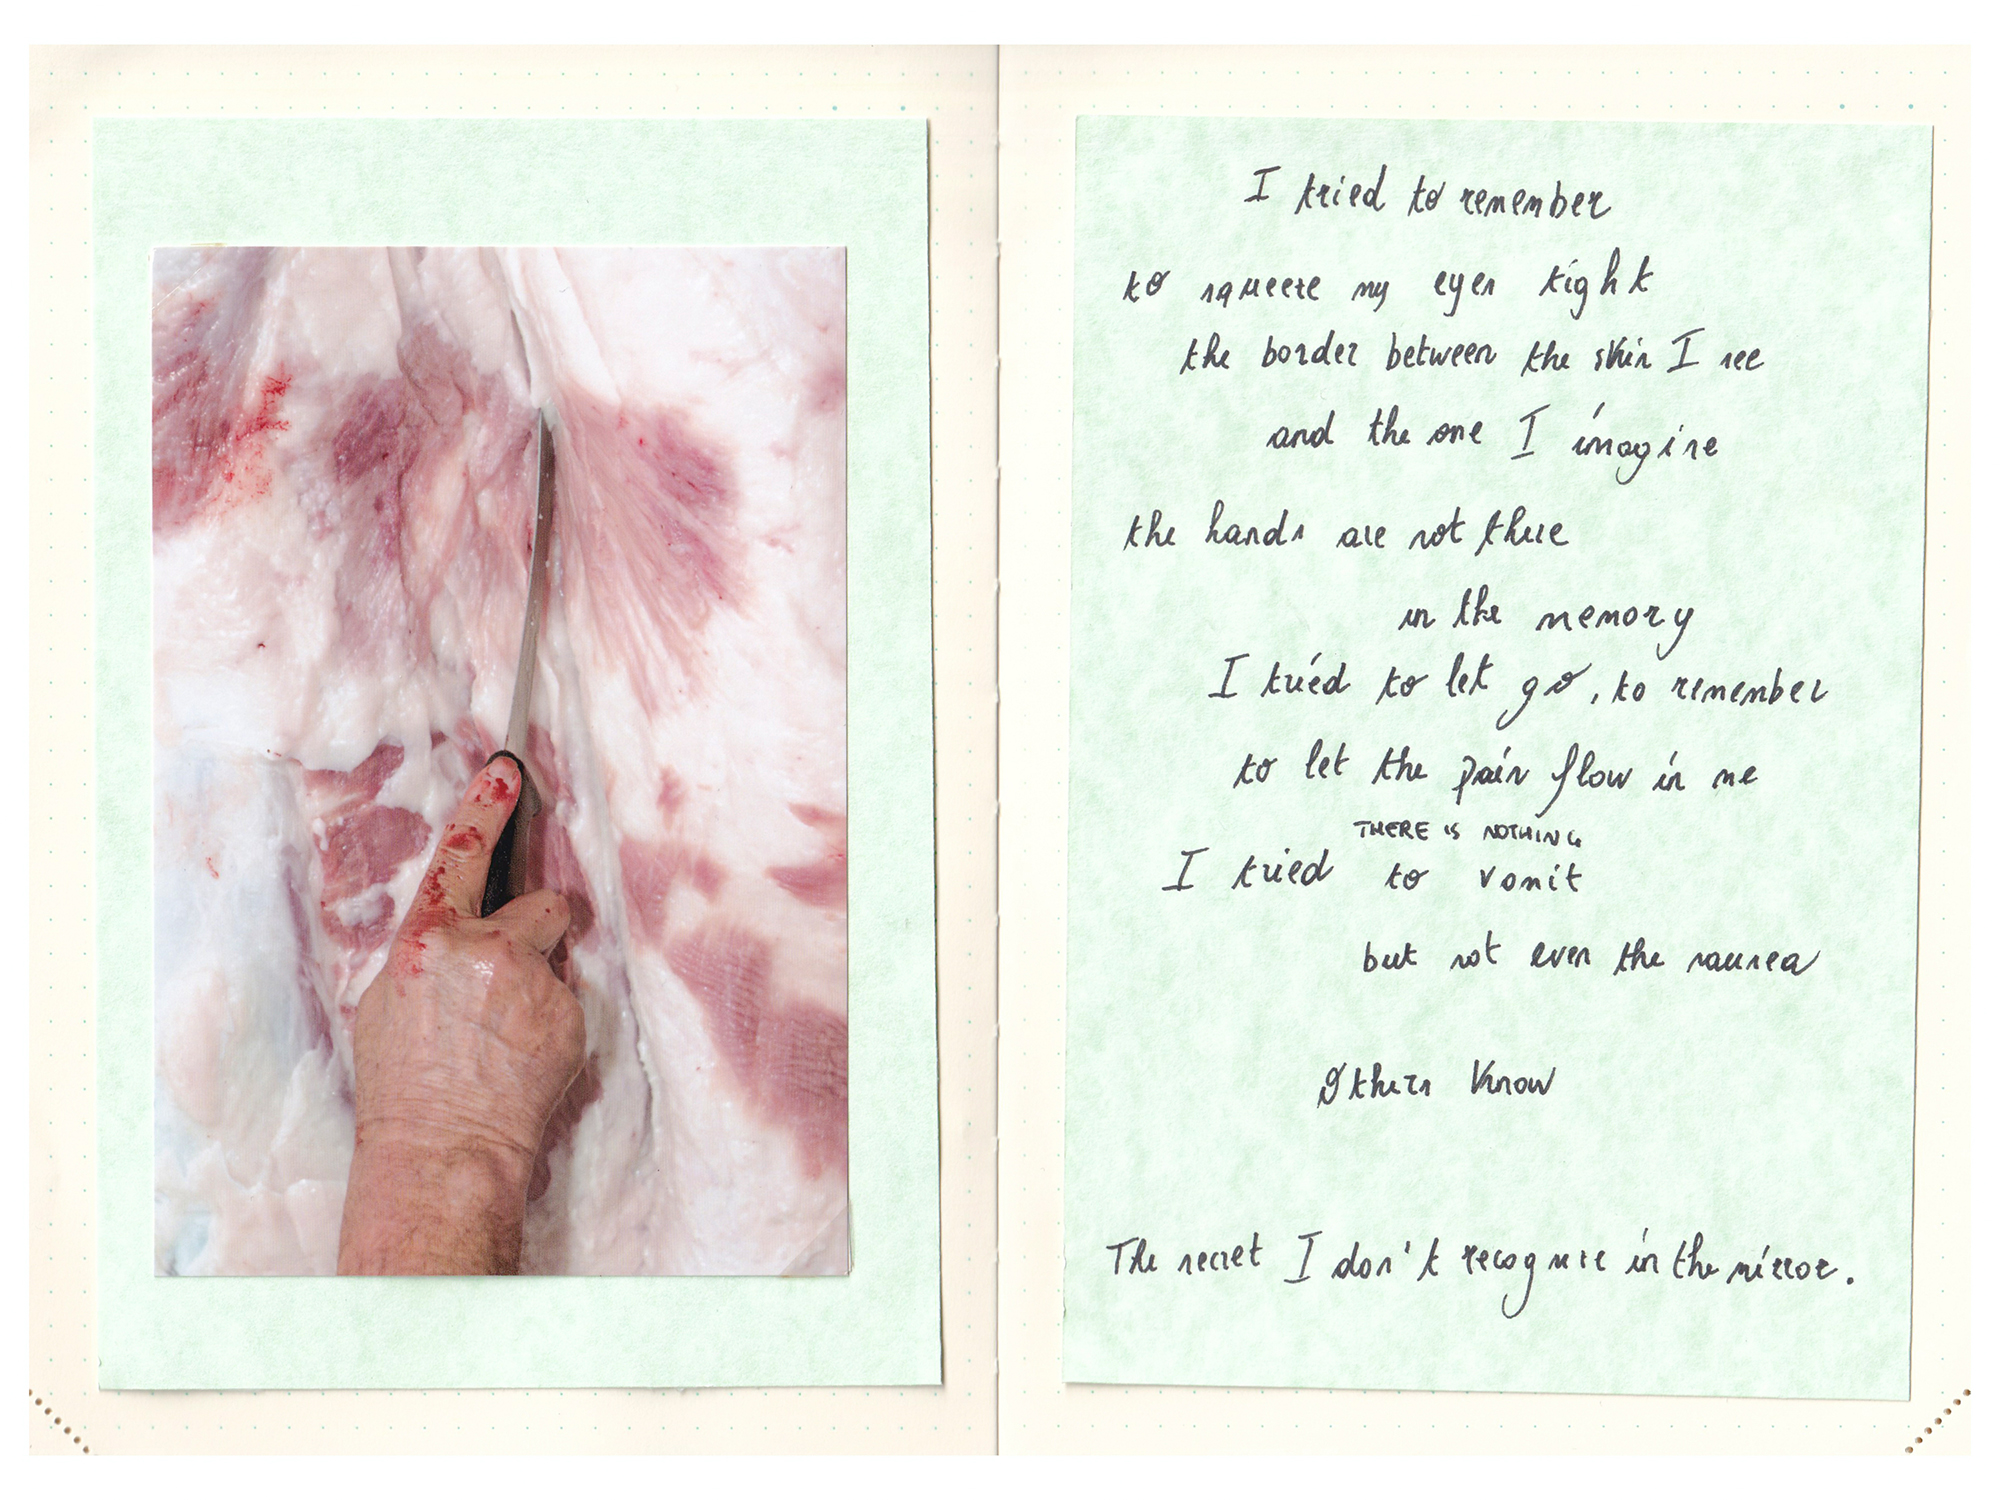 I tried to remember
to squeeze my eyes tight
the border between the skin I see
and the one I imagine
the hands are not there
in the memory
I tried to let go, to remember
to let the pain flow in me
THERE IS NOTHING
I tried to vomit
but not even the nausea
Others know
The secret I don't recognize in the mirror.